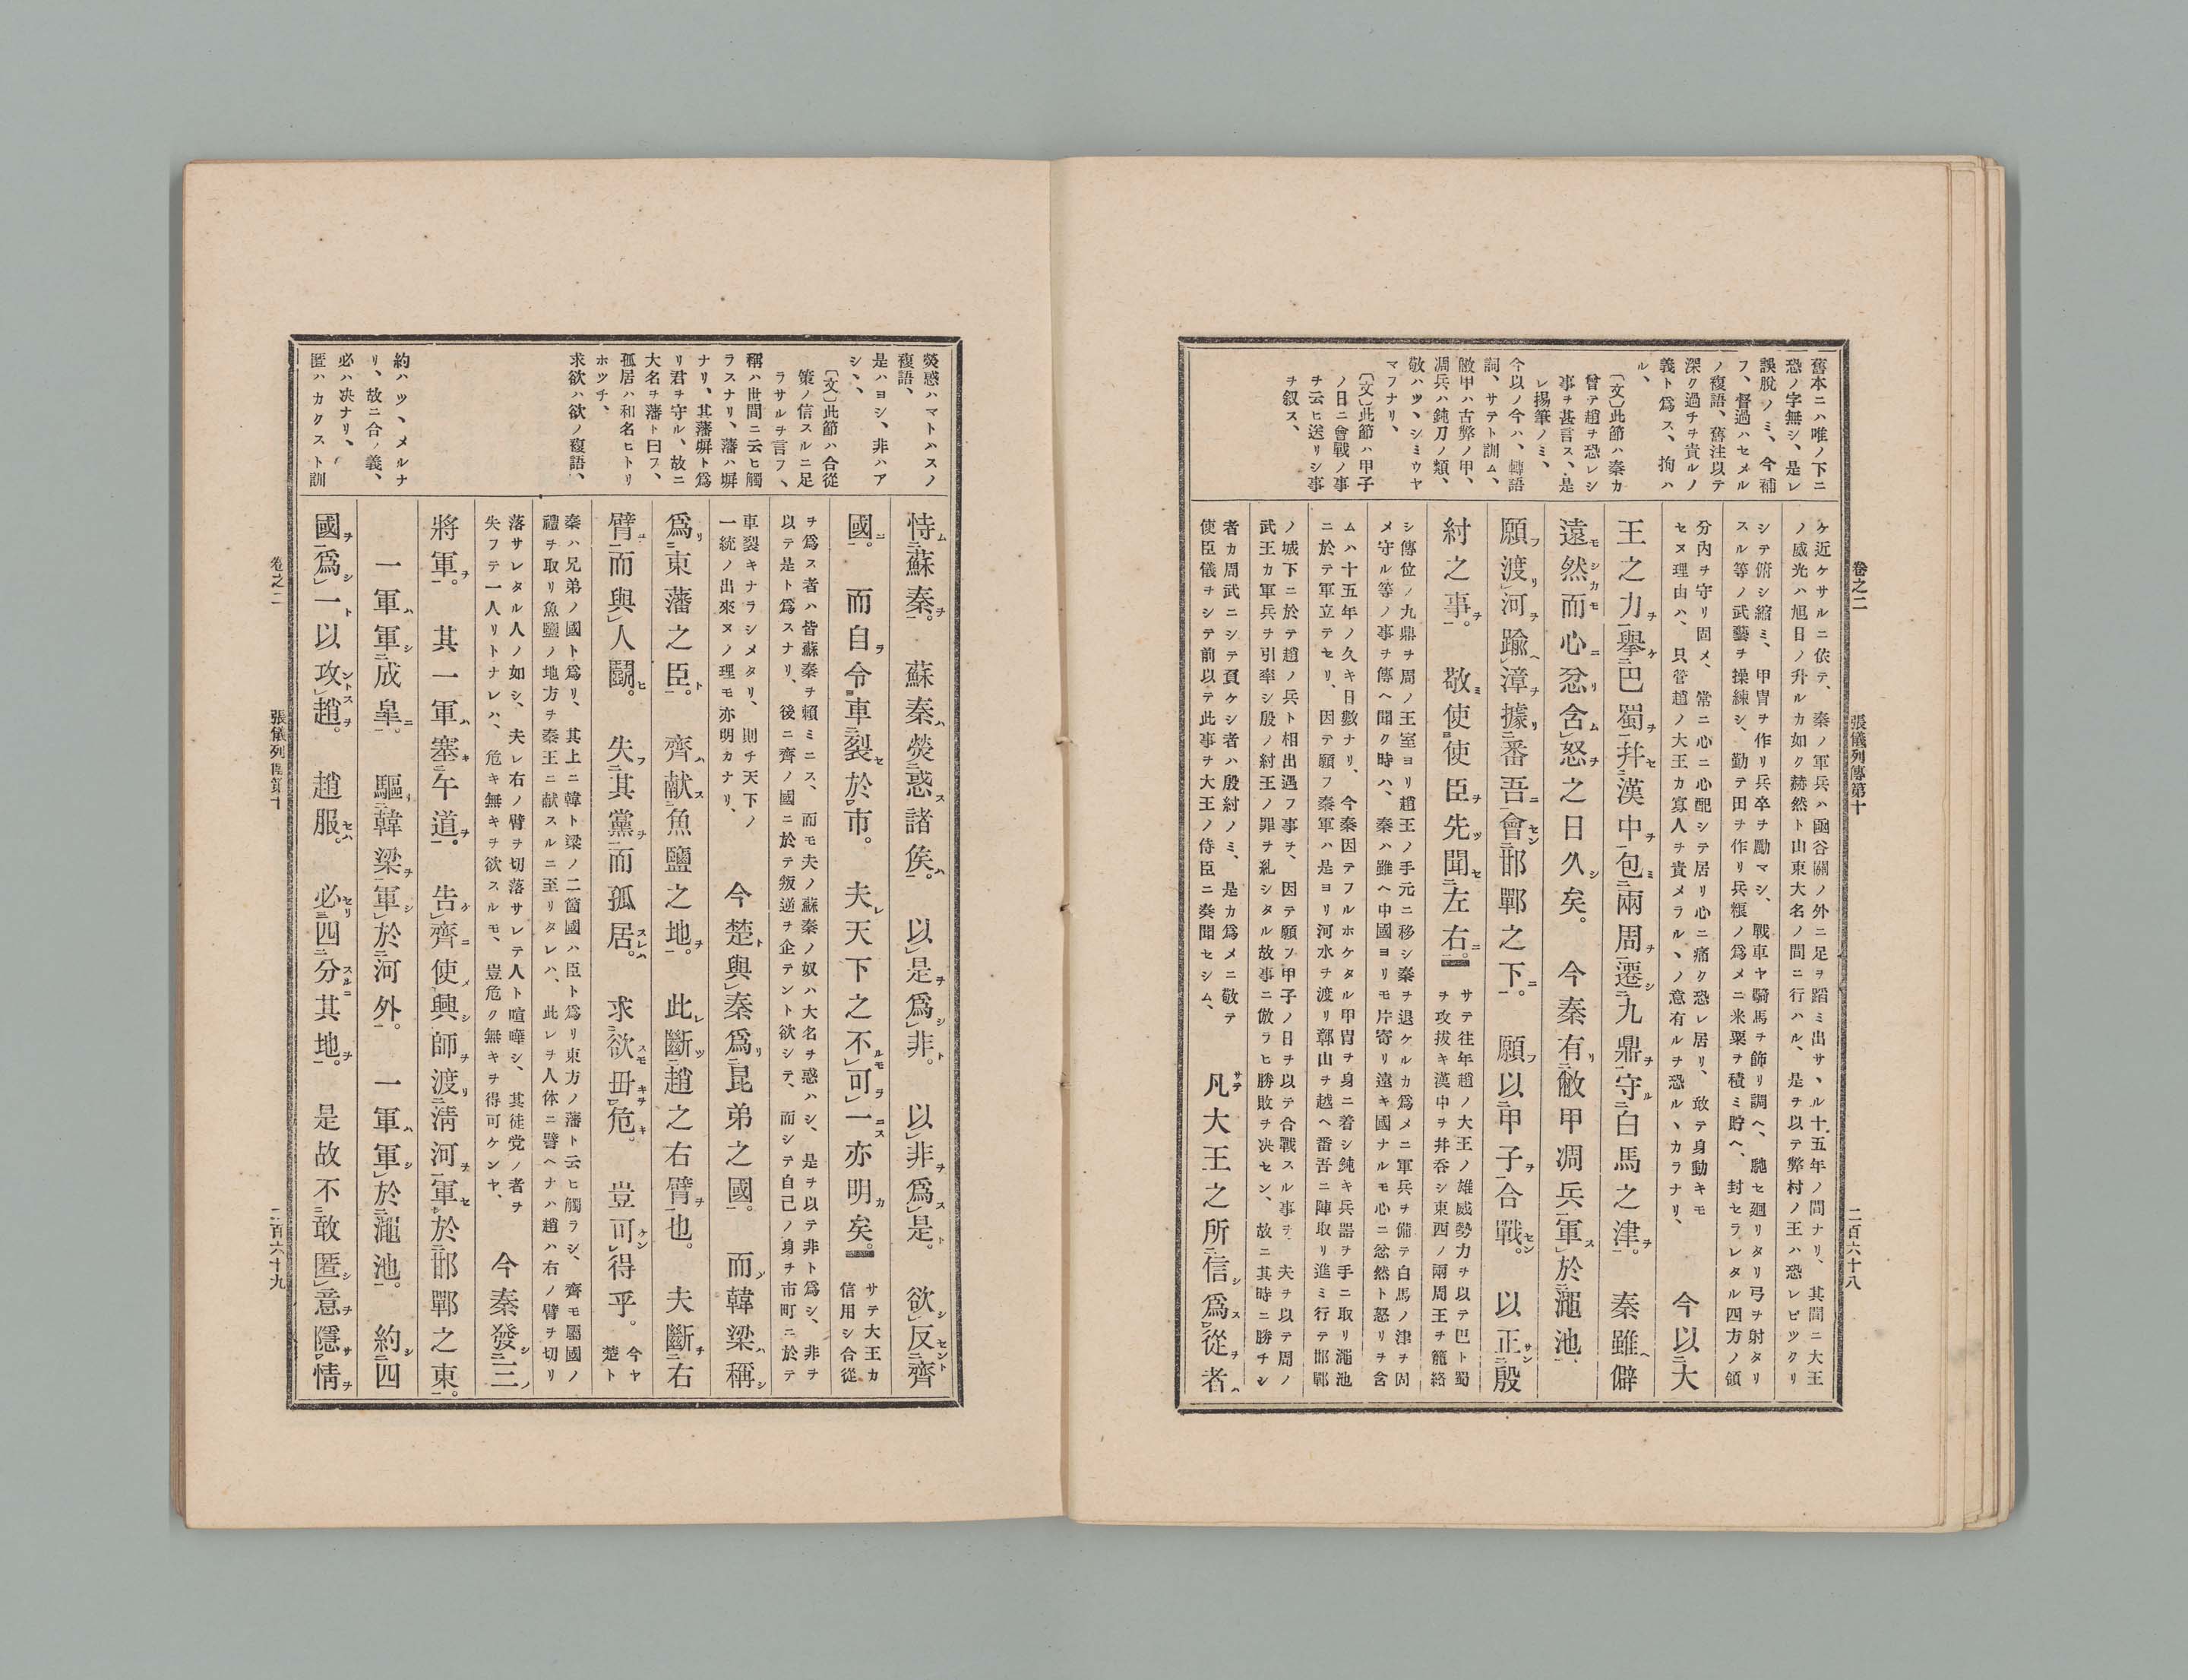 卷之二
張儀列傳第十
二百六十八
舊本ニハ唯ノ下ニ
恐ノ字無シ、是レ
誤脫ノミ、今補
フ、督過ハセメル
ノ複語、舊注以テ
深ク過チヲ責ルノ
義ト爲ス、拘ハ
ル、
〔文〕此節ハ秦カ
曾テ趙ヲ恐レシ
事ヲ甚言ス、是
レ揚筆ノミ、
今以ノ今ハ、轉語
詞、サテト訓ム、
敝甲ハ古弊ノ甲、
凋兵ハ鈍刀ノ類、
敬ハツヽシミウヤ
マフナリ、
〔文〕此節ハ甲子
ノ日ニ會戰ノ事
ヲ云ヒ送リシ事
ヲ叙ス、
ケ近ケサルニ依テ、秦ノ軍兵ハ凾谷關ノ外ニ足ヲ蹈ミ出サヽル十五年ノ間ナリ、其間ニ大王
ノ威光ハ旭日ノ升ルカ如ク赫然ト山東大名ノ間ニ行ハル、是ヲ以テ弊村ノ王ハ恐レビツクリ
シテ俯シ縮ミ、甲冑ヲ作リ兵卒ヲ勵マシ、戰車ヤ騎馬ヲ飾リ調ヘ、馳セ廻リタリ弓ヲ射タリ
スル等ノ武藝ヲ操練シ、勤テ田ヲ作リ兵粮ノ爲メニ米粟ヲ積ミ貯ヘ、封セラレタル四方ノ領
分內ヲ守リ固メ、常ニ心ニ心配シテ居リ心ニ痛ク恐レ居リ、敢テ身動キモ
セヌ理由ハ、只管趙ノ大王カ寡人ヲ責メラルヽノ意有ルヲ恐ルヽカラナリ、
今以大
王之力。擧巴蜀。幷漢中。包兩周。遷九鼎。守白馬之津。秦雖僻
遠然而心忿含怒之日久矣。今秦有敝甲凋兵軍於澠池、
願渡河踰漳據番吾會邯鄲之下。願以甲子合戰。以正殷
紂之事。敬使使臣先聞左右。
サテ往年趙ノ大王ノ雄威勢力ヲ以テ巴ト蜀
ヲ攻拔キ漢中ヲ幷呑シ東西ノ兩周王ヲ籠絡
シ傳位ノ九鼎ヲ周ノ王室ヨリ趙王ノ手元ニ移シ秦ヲ退ケルカ爲メニ軍兵ヲ備テ白馬ノ津ヲ固
メ守ル等ノ事ヲ傳ヘ聞ク時ハ、秦ハ雖ヘ中國ヨリモ片寄リ遠キ國ナルモ心ニ忿然ト怒リヲ含
ムハ十五年ノ久キ日數ナリ、今秦因テフルホケタル甲冑ヲ身ニ着シ鈍キ兵器ヲ手ニ取リ澠池
ニ於テ軍立テセリ、因テ願フ秦軍ハ是ヨリ河水ヲ渡リ鄣山ヲ越ヘ番吾ニ陣取リ進ミ行テ邯鄲
ノ城下ニ於テ趙ノ兵ト相出遇フ事ヲ、因テ願フ甲子ノ日ヲ以テ合戰スル事ヲ、夫ヲ以テ周ノ
武王カ軍兵ヲ引率シ殷ノ紂王ノ罪ヲ糺シタル故事ニ倣ラヒ勝敗ヲ決セン、故ニ其時ニ勝チシ
者カ周武ニシテ負ケシ者ハ殷紂ノミ、是カ爲メニ敬テ
使臣儀ヲシテ前以テ此事ヲ大王ノ侍臣ニ奏聞セシム、
凡大王之所信爲從者
熒惑ハマトハスノ
複語、
是ハヨシ、非ハア
シヽ、
〔文〕此節ハ合從
策ノ信スルニ足
ラサルヲ言フ、
稱ハ世間ニ云ヒ觸
ラスナリ、藩ハ塀
ナリ、其藩塀ト爲
リ君ヲ守ル、故ニ
大名ヲ藩ト曰フ、
孤居ハ和名ヒトリ
ホツチ、
求欲ハ欲ノ複語、
約ハツヽメルナ
リ、故ニ合ノ義、
必ハ決ナリ、
匿ハカクスト訓
恃蘇秦。蘇秦熒惑諸侯。以是爲非。以非爲是。欲反齊
國。而自令車裂於市。夫天下之不可一亦明矣。
サテ大王カ
信用シ合從
ヲ爲ス者ハ皆蘇秦ヲ賴ミニス、而モ夫ノ蘇秦ノ奴ハ大名ヲ惑ハシ、是ヲ以テ非ト爲シ、非ヲ
以テ是ト爲スナリ、後ニ齊ノ國ニ於テ叛逆ヲ企テント欲シテ、而シテ自己ノ身ヲ市町ニ於テ
車裂キナラシメタリ、則チ天下ノ
一統ノ出來ヌノ理モ亦明カナリ、
今楚與秦爲昆弟之國。而韓梁稱
爲東藩之臣。齊献魚鹽之地。此斷趙之右臂也。夫斷右
臂而與人鬭。失其黨而孤居。求欲毋危。豈可得乎。
今ヤ
楚ト
秦ハ兄弟ノ國ト爲リ、其上ニ韓ト梁ノ二箇國ハ臣ト爲リ東方ノ藩ト云ヒ觸ラシ、齊モ屬國ノ
禮ヲ取リ魚鹽ノ地方ヲ秦王ニ献スルニ至リタレハ、此レヲ人体ニ譬ヘナハ趙ハ右ノ臂ヲ切リ
落サレタル人ノ如シ、夫レ右ノ臂ヲ切落サレテ人ト喧嘩シ、其徒党ノ者ヲ
失フテ一人リトナレハ、危キ無キヲ欲スルモ、豈危ク無キヲ得可ケンヤ、
今秦發三
將軍。其一軍塞午道。告齊使興師渡淸河軍於邯鄲之東。
一軍軍成皐。驅韓梁軍於河外。一軍軍於澠池。約四
國爲一以攻趙。趙服。必四分其地。是故不敢匿意隱情
卷之二
張儀列傳第十
二百六十九